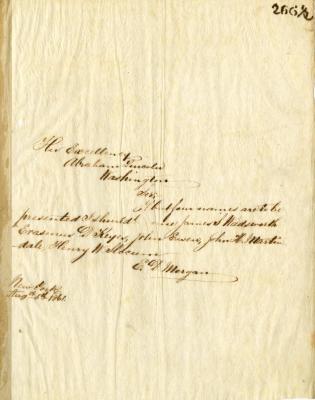 266½
His Excellency
Abraham Lincoln
Washington
Sir,
If but four names are to be
presented I should James S Wadsworth
Erasmus D Keyes, John Ewen, John H. Martin
dale, Henry W Slocum
E. D. Morgan
New York
Aug 5th 1861.